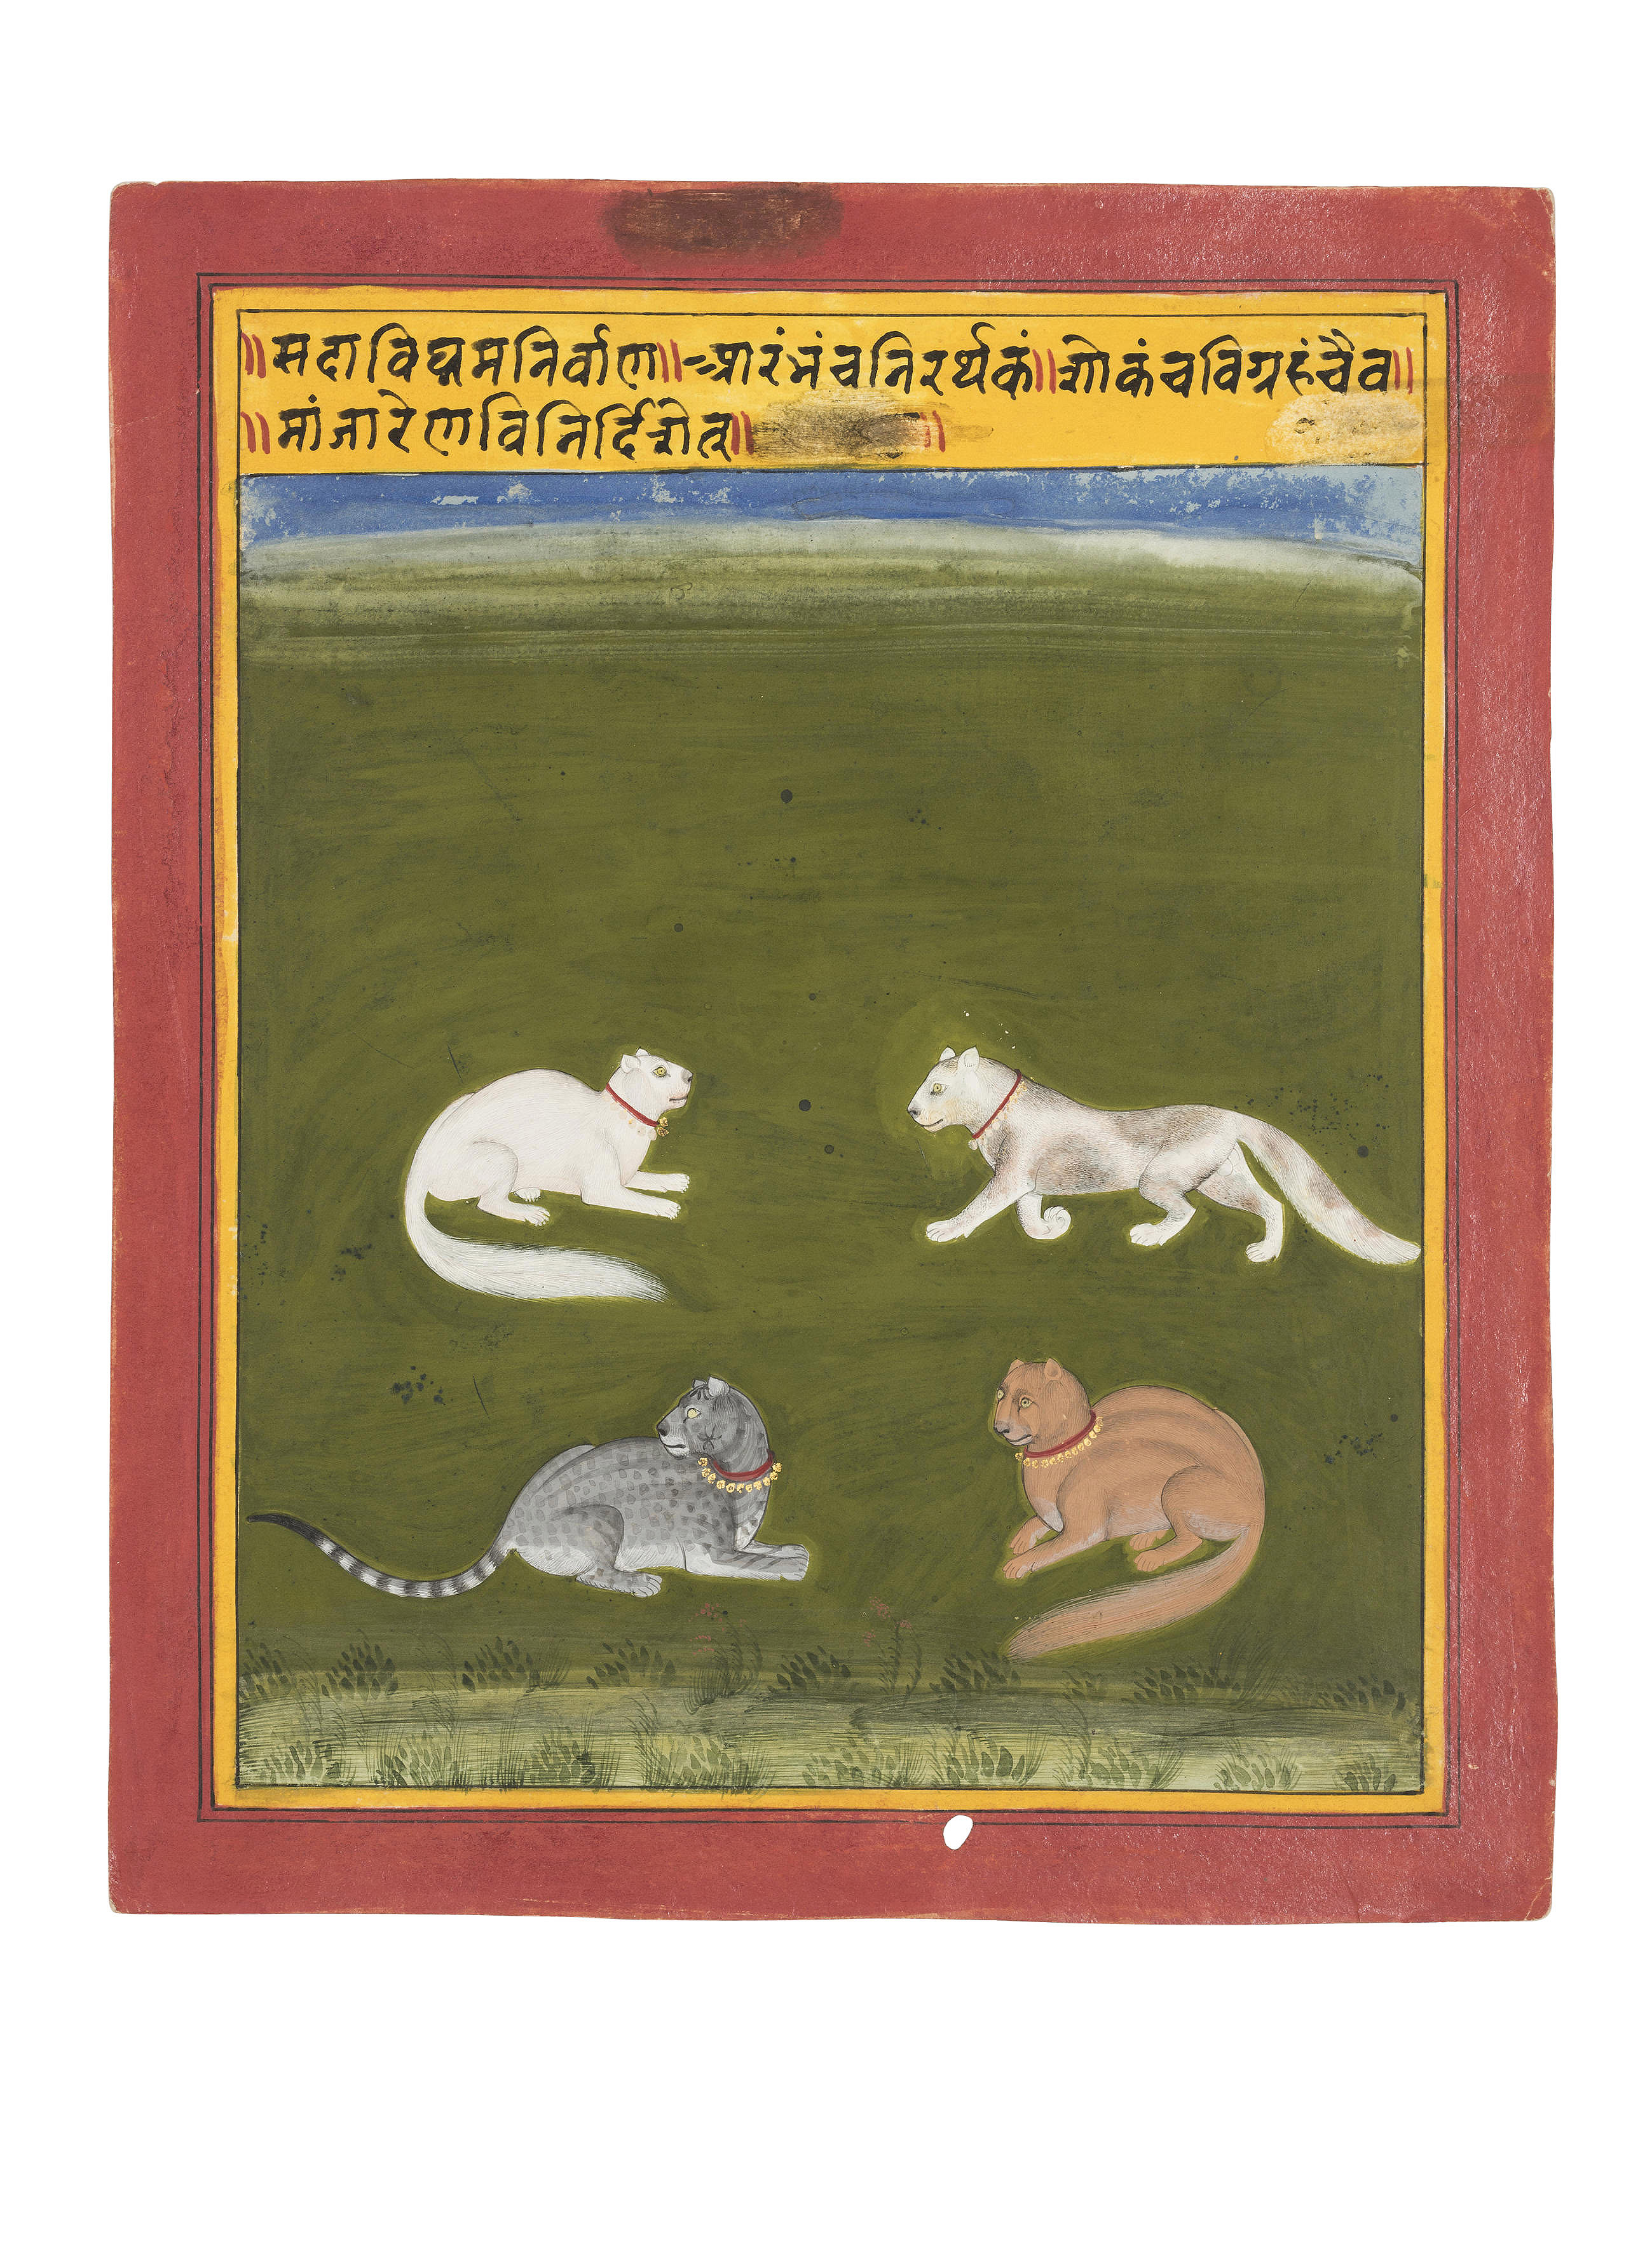 ॥सदाविघ्नमनिर्वाण॥आरंभंचनिरर्थकं॥शोकंचविग्रहंचैव॥
॥मांजारेणविनिर्दिशेत्॥ ॥